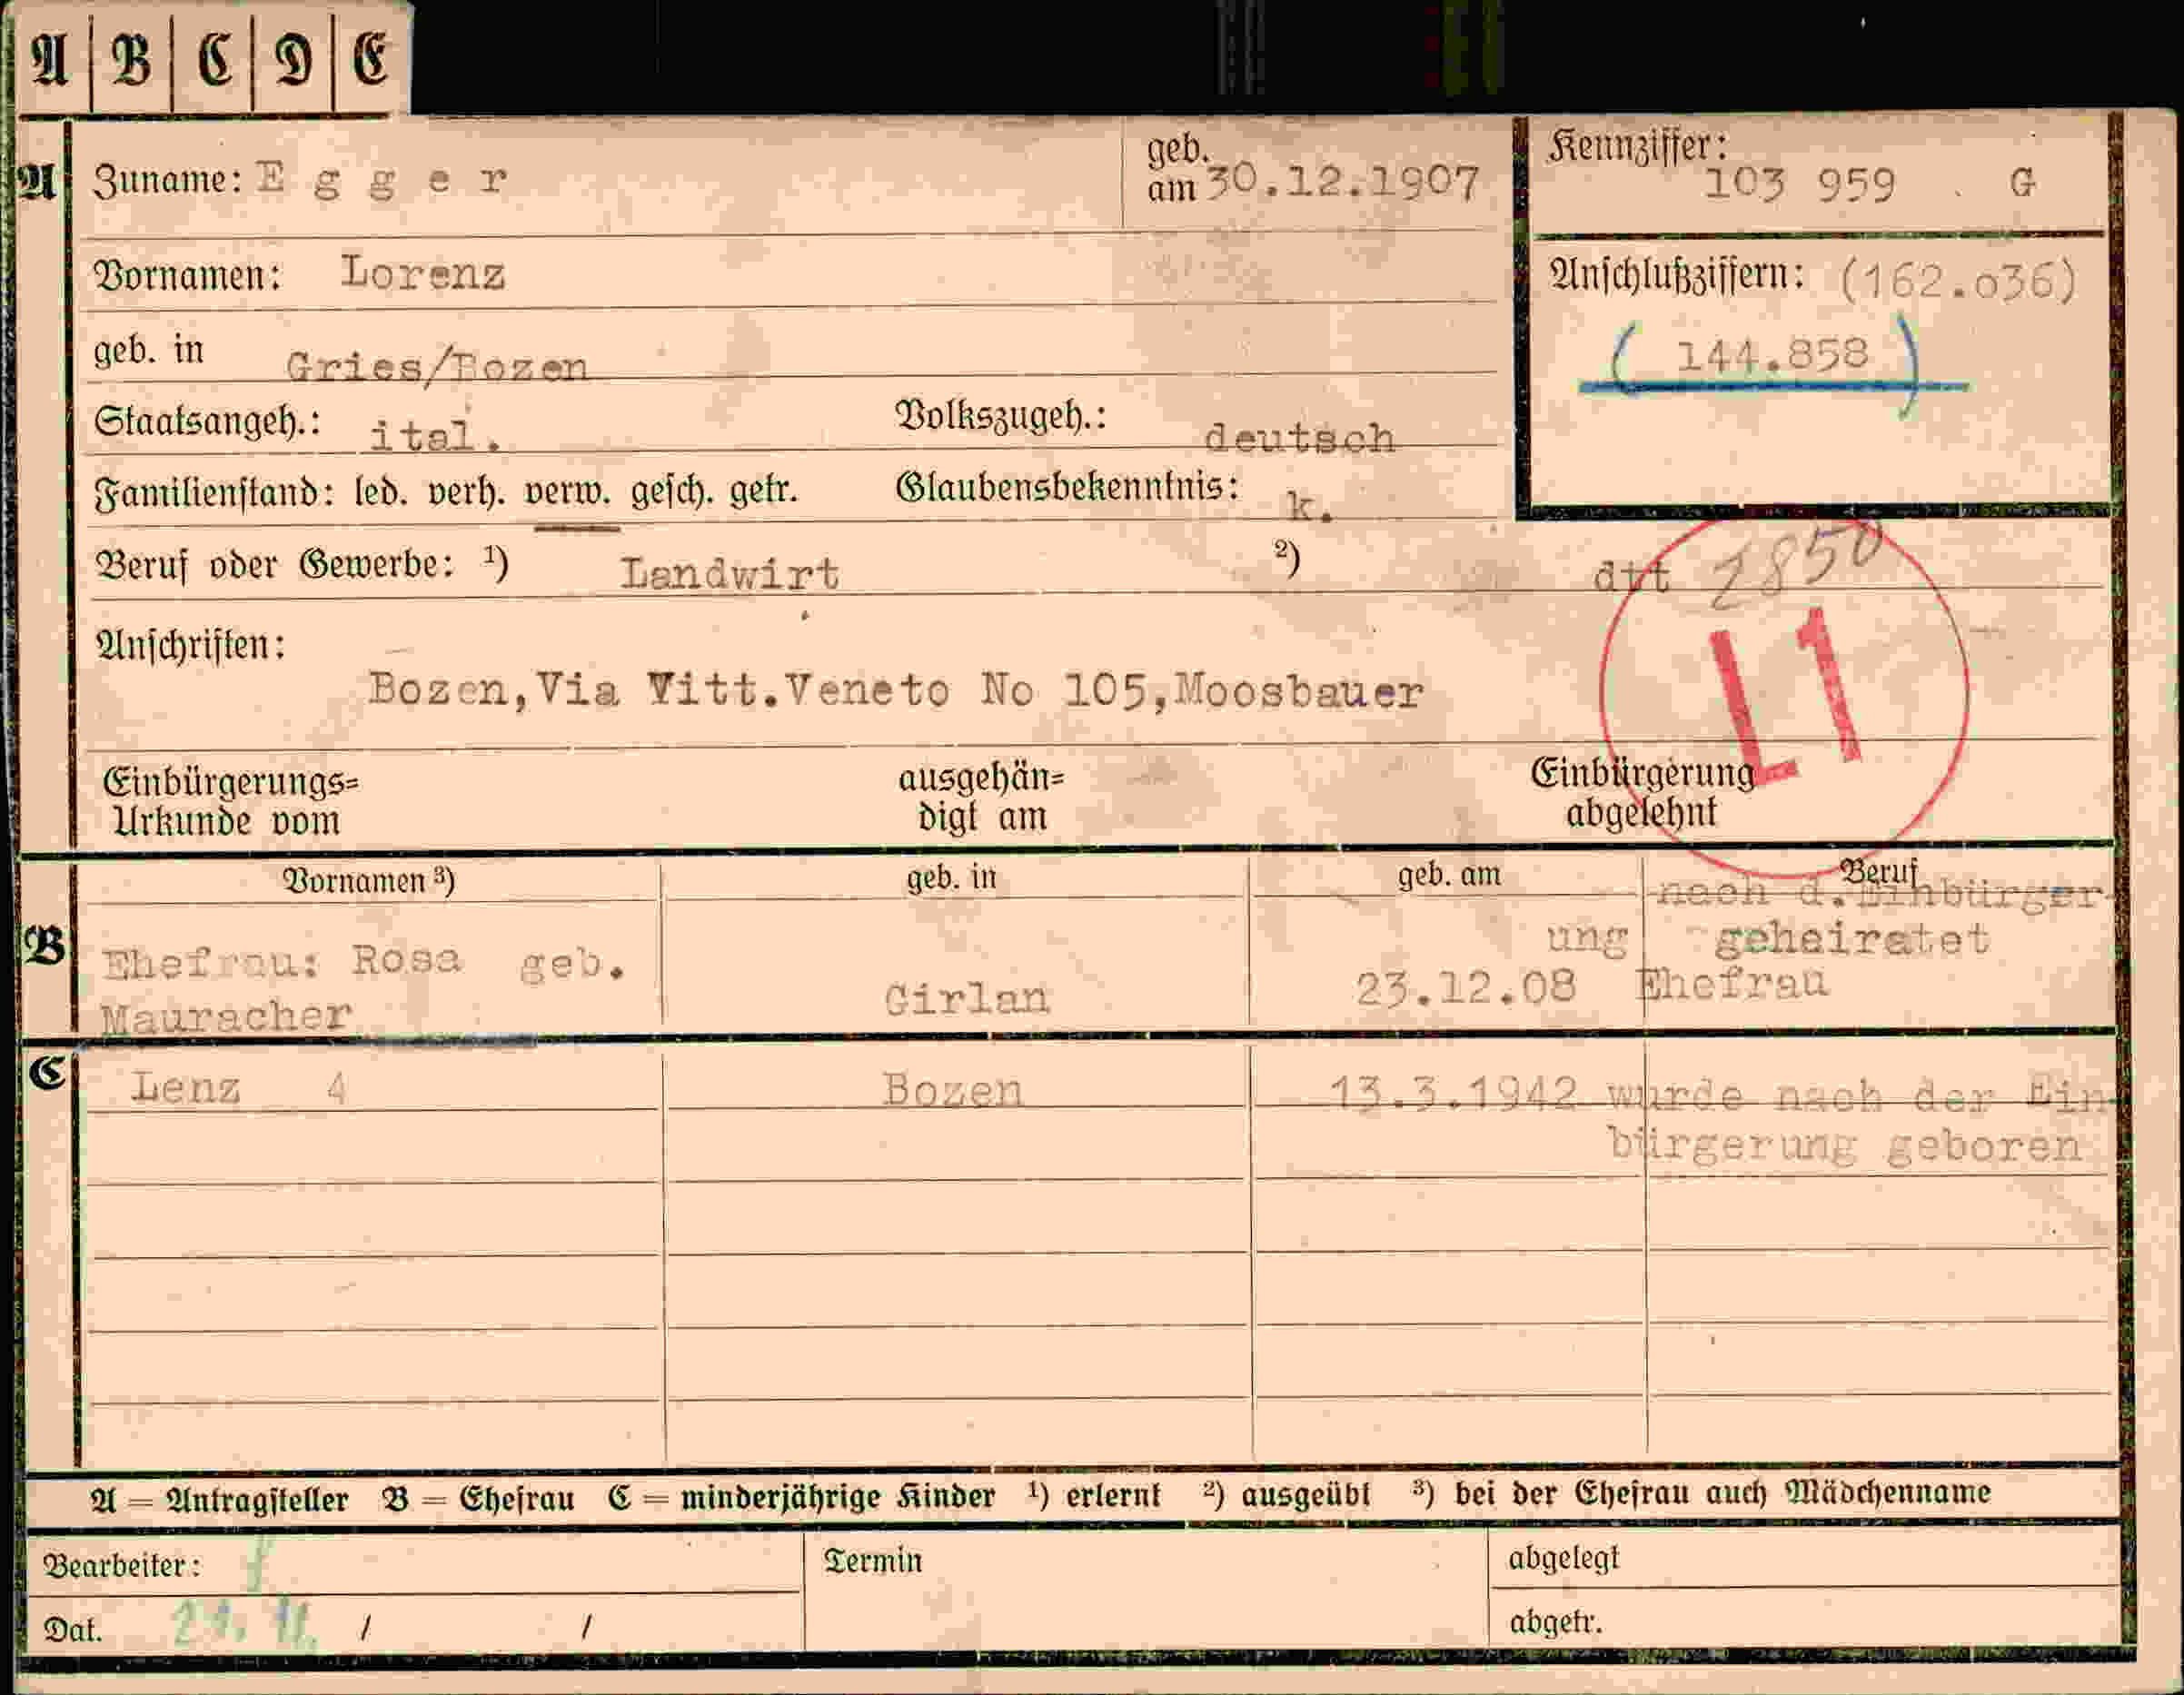 A B C D E
A Zuname: E g g e r geb. am 30.12.1907 Kennziffer: 103 959 . G
Vornamen: Lorenz Anschlußziffern: (162.o36)
geb. in Gries/Bozen ( 144.858 )
Staatsangeh.: ital. Volkszugeh.: deutsch
Familienstand: led. verh. verw. gesch. getr. Glaubensbekenntnis: k.
Beruf oder Gewerbe: ¹) Landwirt ²) dtt 2850
L1
Anschriften:
Bozen,Via Vitt.Veneto No 105,Moosbauer
Einbürgerungs= ausgehän= Einbürgerung
Urkunde vom digt am abgelehnt
Vornamen ³) geb. in geb. am Beruf
nach d.Einbürger-
B ung geheiratet
Ehefrau: Rosa geb.
Mauracher Girlan 23.12.08 Ehefrau
C Lenz 4 Bozen 13.3.1942 wurde nach der Ein-
bürgerung geboren
A = Antragsteller B = Ehefrau C = minderjährige Kinder ¹) erlernt ²) ausgeübt ³) bei der Ehefrau auch Mädchenname
Bearbeiter: Termin abgelegt
Dat. / / abgetr.